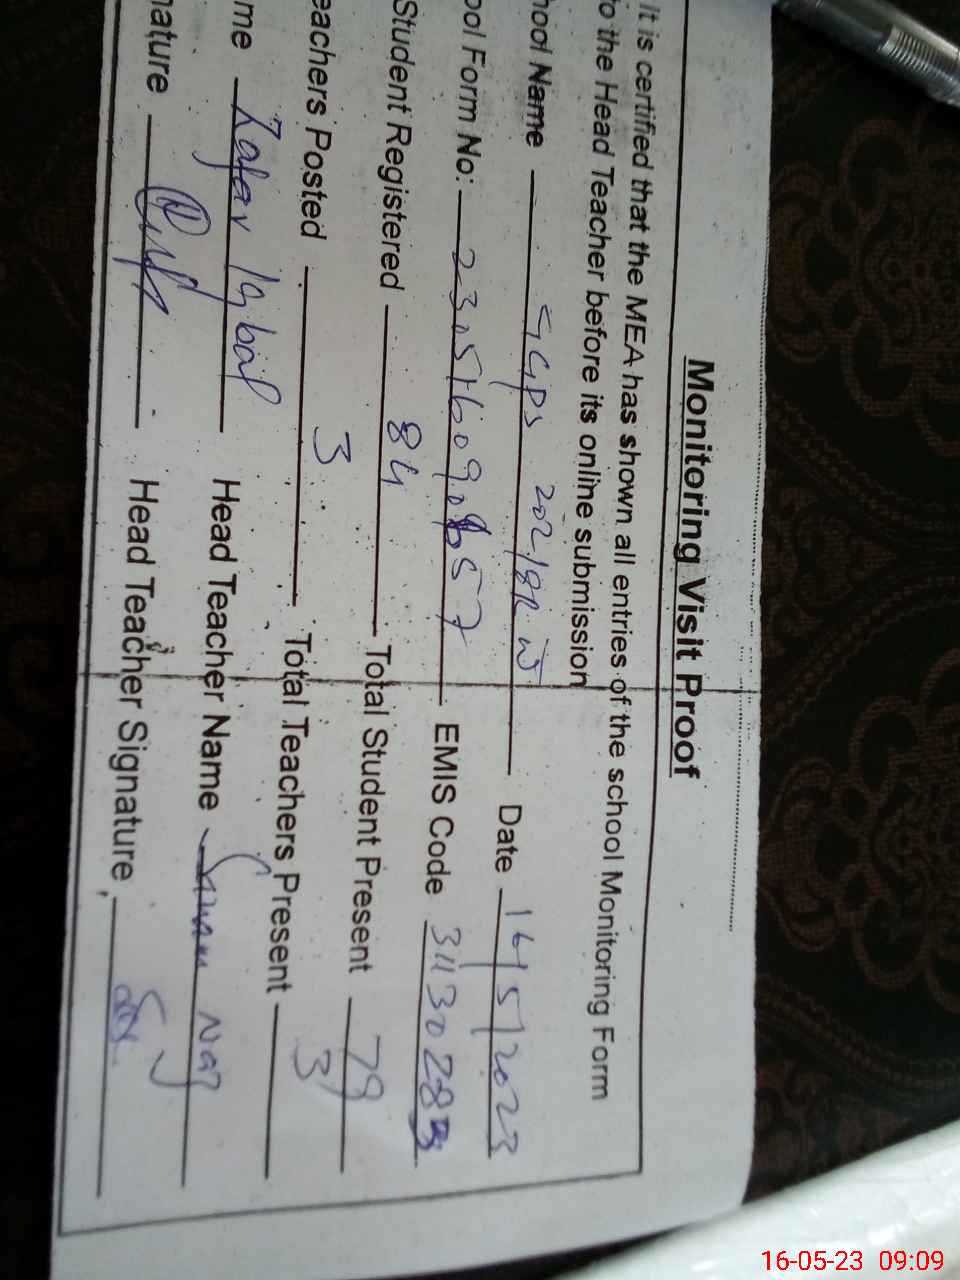 Monitoring Visit Proof
It is certified that the MEA has shown all entries of the school Monitoring Form
To the Head Teacher before its online submission
hool Name GGPS 202/8R W Date 16/5/2023
ool Form No: EMIS Code
Student Registered 84 Total Student Present 79
eachers Posted 3 Total Teachers Present 3
me Zafar Iqbal Head Teacher Name
nature Head Teacher Signature
16-05-23 09:09